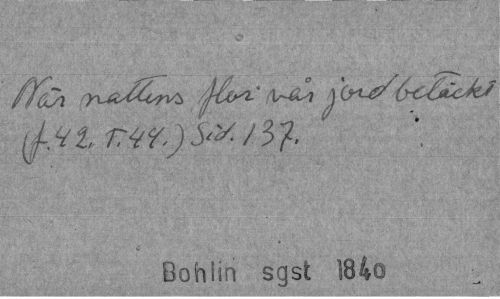 När nattens flor vår jord betäckt
(f.42. T.44.) Sid. 137.
Bohlin sgst 1840